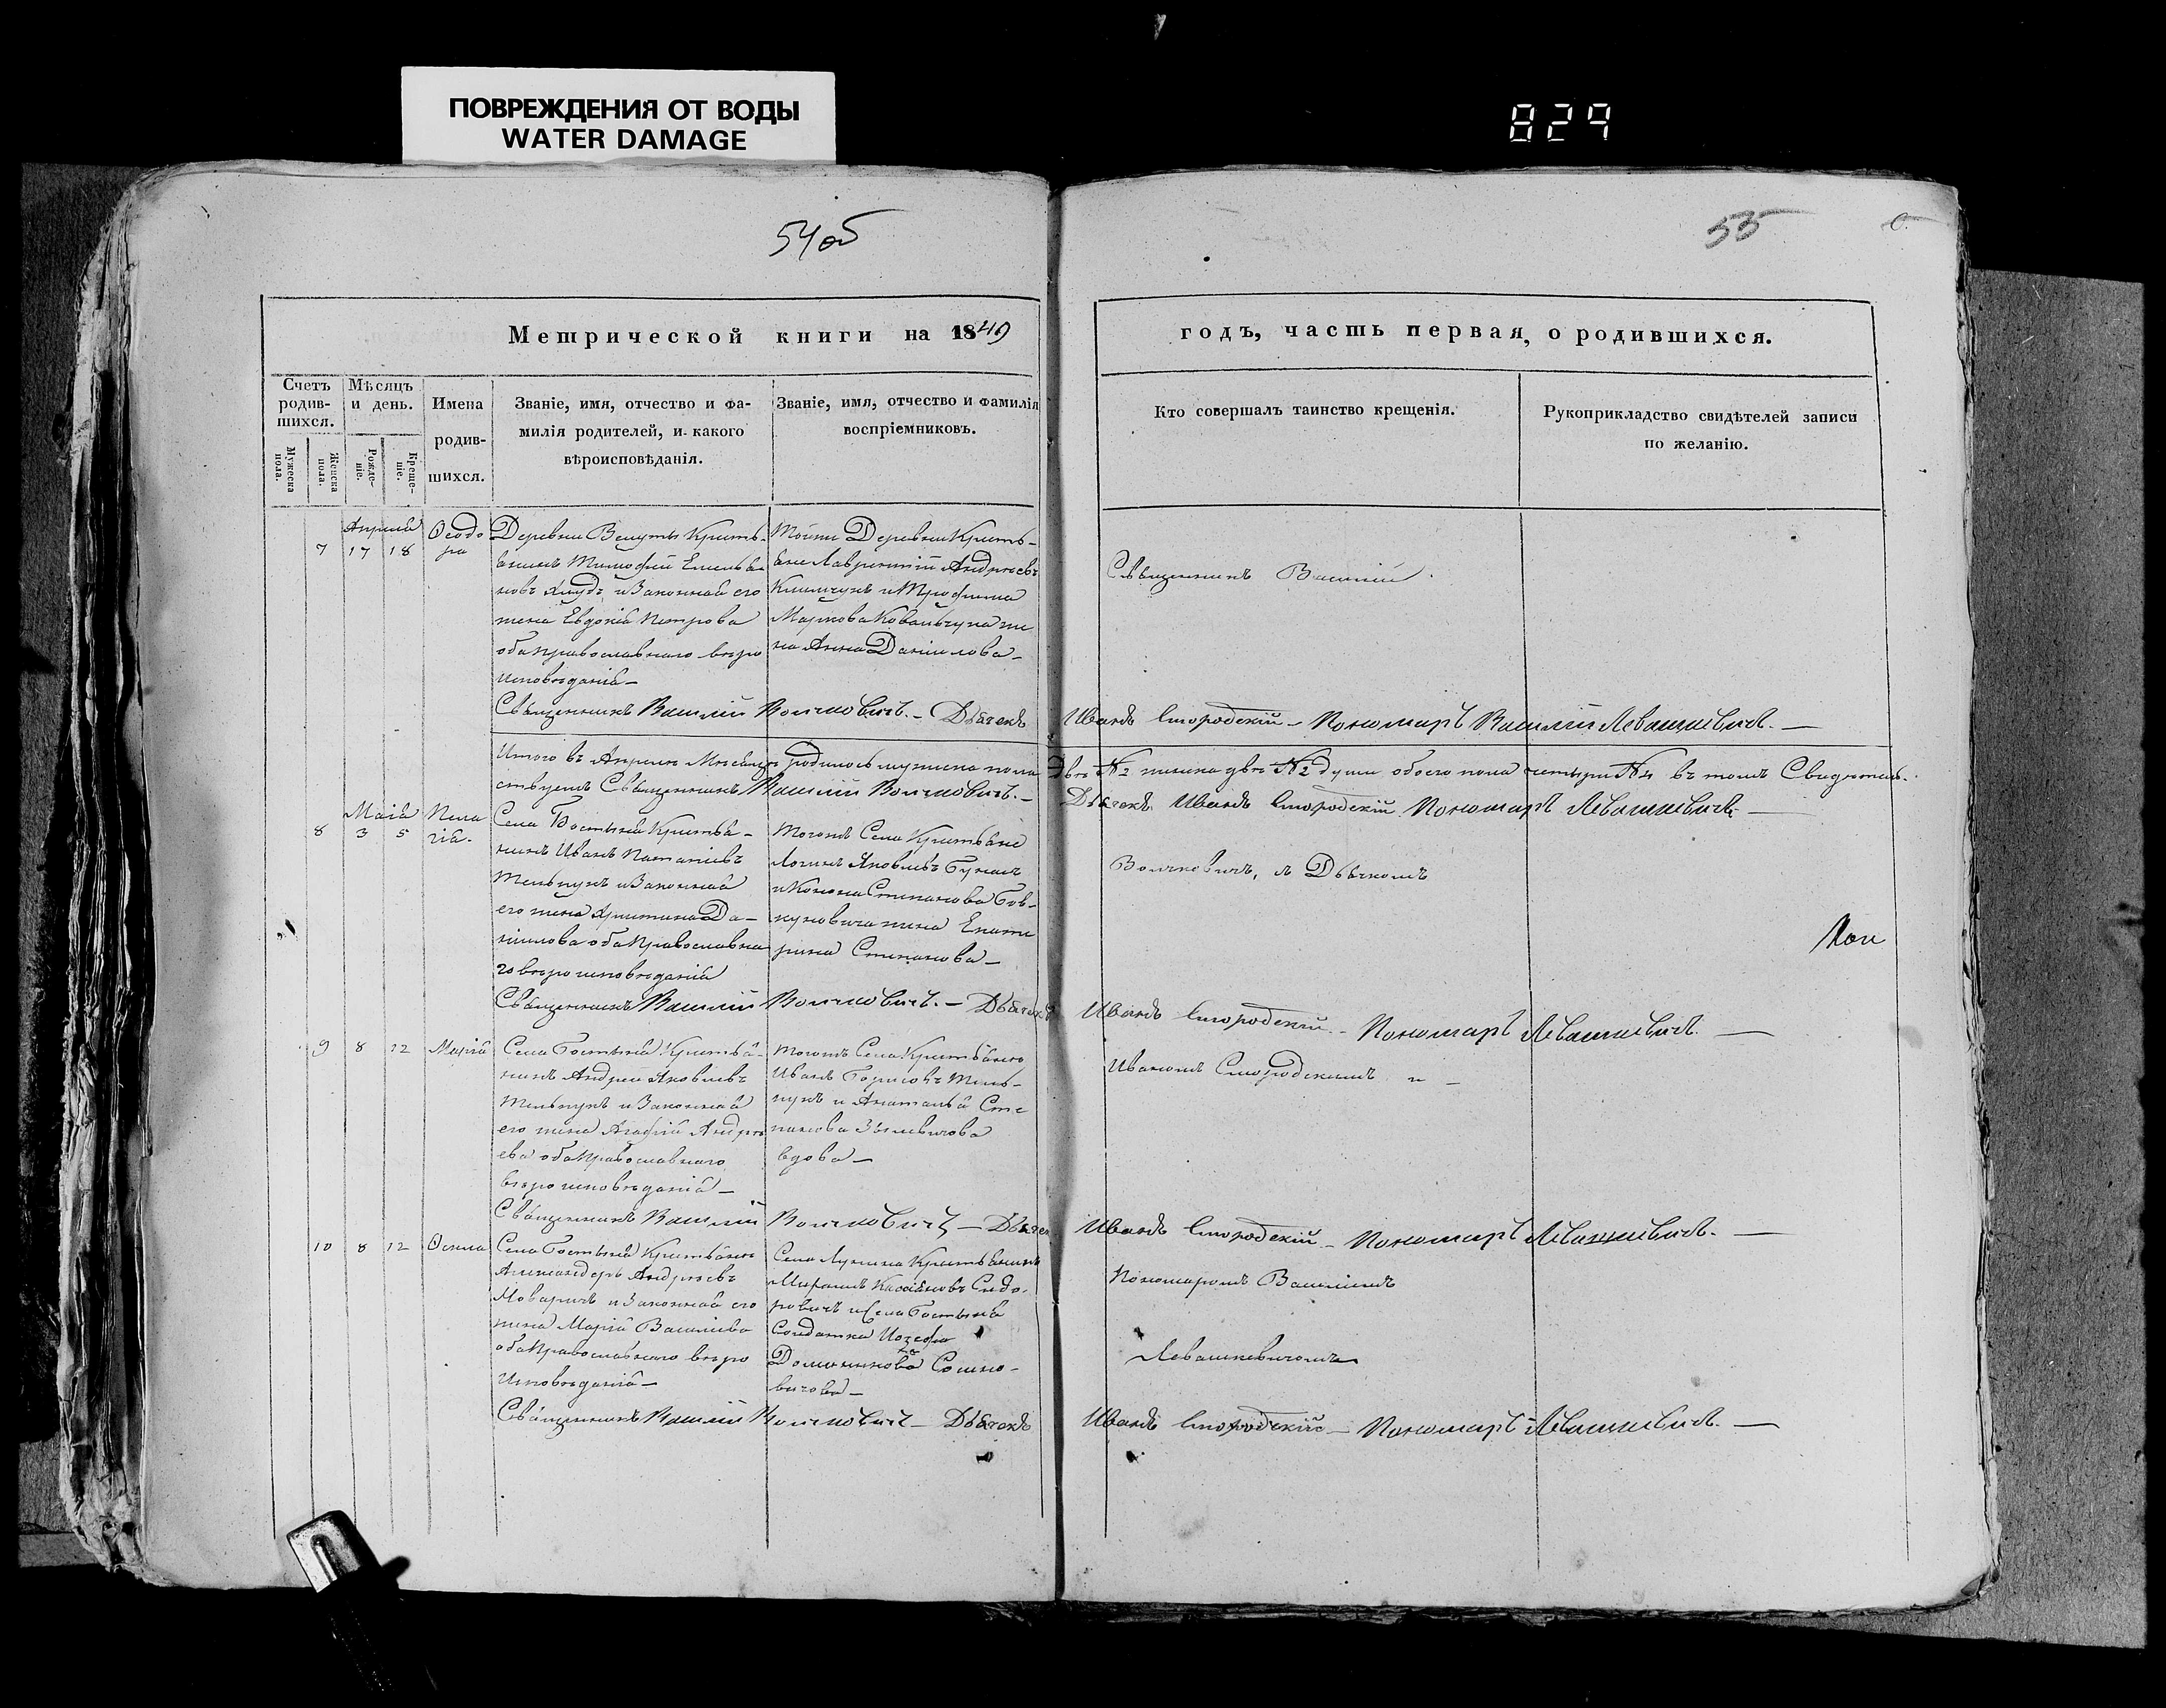 ПОВРЕЖДЕНИЯ ОТ ВОДЫ
WATER DAMAGE
829
54об
55
Метрической книги на 1849
годъ, часть первая, о родившихся.
Счетъ родив-шихся.
Мужеска пола.
Женска пола.
Мѣсяцъ и день.
Рожде-ніе.
Креще-ніе.
Имена родив-шихся.
Званіе, имя, отчество и фа-
милія родителей, и какого
вѣроисповѣданія.
Званіе, имя, отчество и фамилія
воспріемниковъ.
Кто совершалъ таинство крещенія.
Рукоприкладство свидѣтелей записи
по желанію.
Апрѣля
7 17 18
Ѳеодо
ра
Деревни Крестья-
нинъ Тимофей Емелья
новъ и Законная его
жена Евдокія Петрова
оба православнаго вѣро
исповѣданія –
Тойже Деревни Крестья-
не Лаврентій Андреевъ
Климчукъ и Трофима
Маркова Ковальчука же
на Анна Даніилова –
Священникъ Василій
Священникъ Василій Волчковичъ. – Дьячекъ Иванъ Смородскій – Пономарь Василій Левашкевичъ. –
Итого въ Апрелѣ Месяцѣ родилось мужеска пола двѣ №2 женска двѣ №2 души обоего пола четыри №4 въ томъ Свидѣтель-
ствуемъ Священникъ Василій Волчковичъ. – Дьячекъ Иванъ Смородскій Пономарь Левашкевичъ –
Маія
8 3 5
Пела
гія.
Села Гостыня Крестья-
нинъ Иванъ
Мельнукъ и Законная
его жена Христина Да-
ніилова оба Православна
го вѣроисповѣданія
Тогожъ Села Крестьяне
Логинъ Яковлевъ
и Конона Степанова
жена Екате
рина Степанова –
Волчковичъ, съ Дьячкомъ
Священникъ Василій Волчковичъ. – Дьячекъ Иванъ Смородскій – Пономарь Левашкевичъ. –
9 8 12 Марія
Села Гостыня Крестья-
нинъ Андрей Яковлевъ
Мельнукъ и Законная
его жена Агафія Андре
ева оба Православнаго
вѣроисповѣданія –
Тогожъ Села Крестьяне
Иванъ Борисовъ Мель-
нукъ и Анаталья Сте
панова
вдова –
Иваномъ Смородскимъ и –
Священникъ Василій Волчковичъ – Дьячек Иванъ Смородскій – Пономарь Левашкевичъ. –
10 8 12 Ѳекла
Села Гостыня Крестьяне
Александеръ Андреевъ
и Законная его
жена Марія Василіева
оба Православнаго вѣро
Исповѣданія –
Села Лунина Крестьянинъ
Сидо-
ровичъ и Села Гостыня
Солдатка Иозефа
Доминикова
вичова –
Пономаромъ Василіемъ
Левашкевичомъ
Священникъ Василій Волчковичъ – Дьячекъ Иванъ Смородскій – Пономарь Левашкевичъ. –